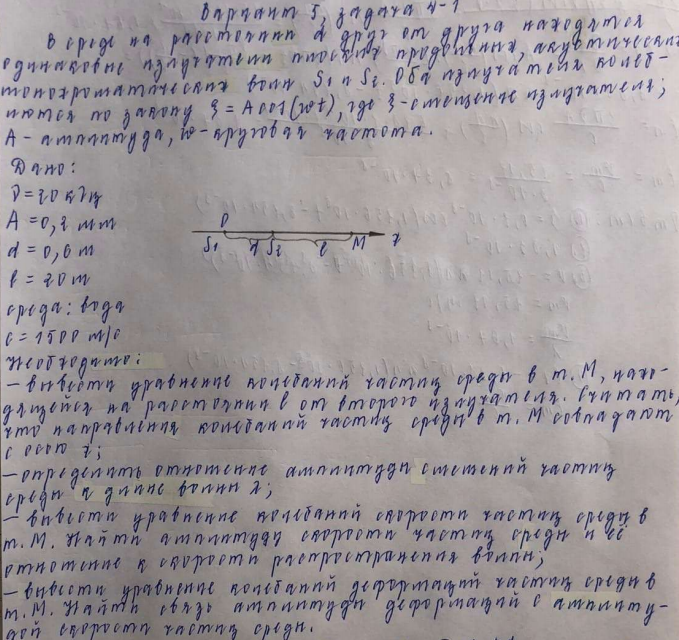 Вариант 5, задача 4-1
В среде на расстоянии d друг от друга находятся
одинаковые излучатели плоских продольных, акустических
монохроматических волн S₁ и S₂. Оба излучателя колеб-
лются по закону ξ = Acos(ωt), где ξ-смещение излучателя;
A - амплитуда, ω-круговая частота.
Дано:
ν=20 кГц
A = 0,2 мм
d = 0,6 м
ℓ = 20 м
среда: вода
c = 1500 м/с
O
S₁ d S₂ ℓ M x
Необходимо:
- вывести уравнение колебаний частиц среды в т. М, нахо-
дящейся на расстоянии ℓ от второго излучателя. Считать,
что направления колебаний частиц среды в т. М совпадают
с осью x;
- определить отношение амплитуды смещений частиц
среды к длине волны λ;
- вывести уравнение колебаний скорости частиц среды в
т. М. Найти амплитуду скорости частиц среды и её
отношение к скорости распространения волны;
- вывести уравнение колебаний деформаций частиц среды в
т. М. Найти связь амплитуды деформаций с амплиту-
дой скорости частиц среды.